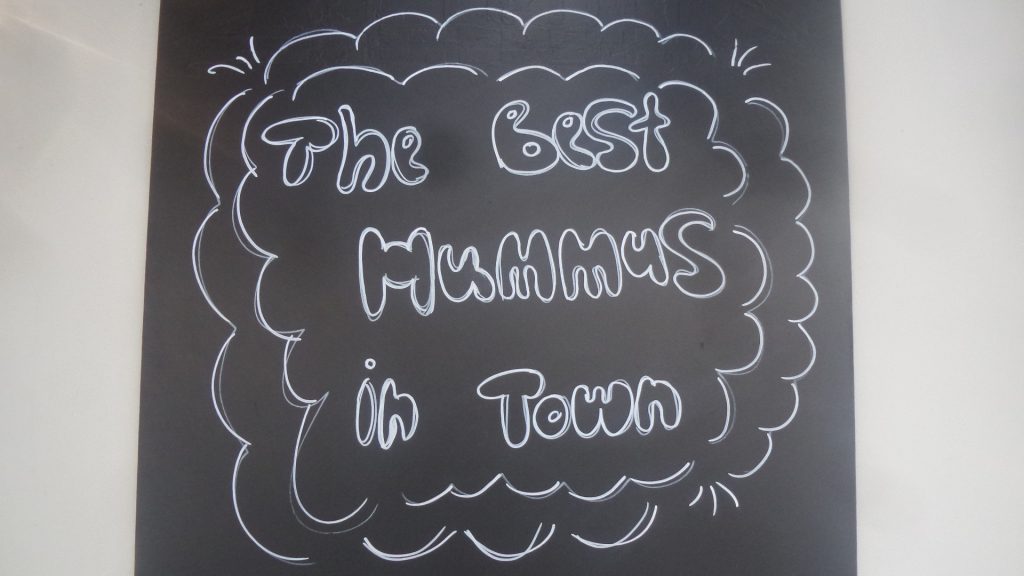 The Best
Hummus
in Town